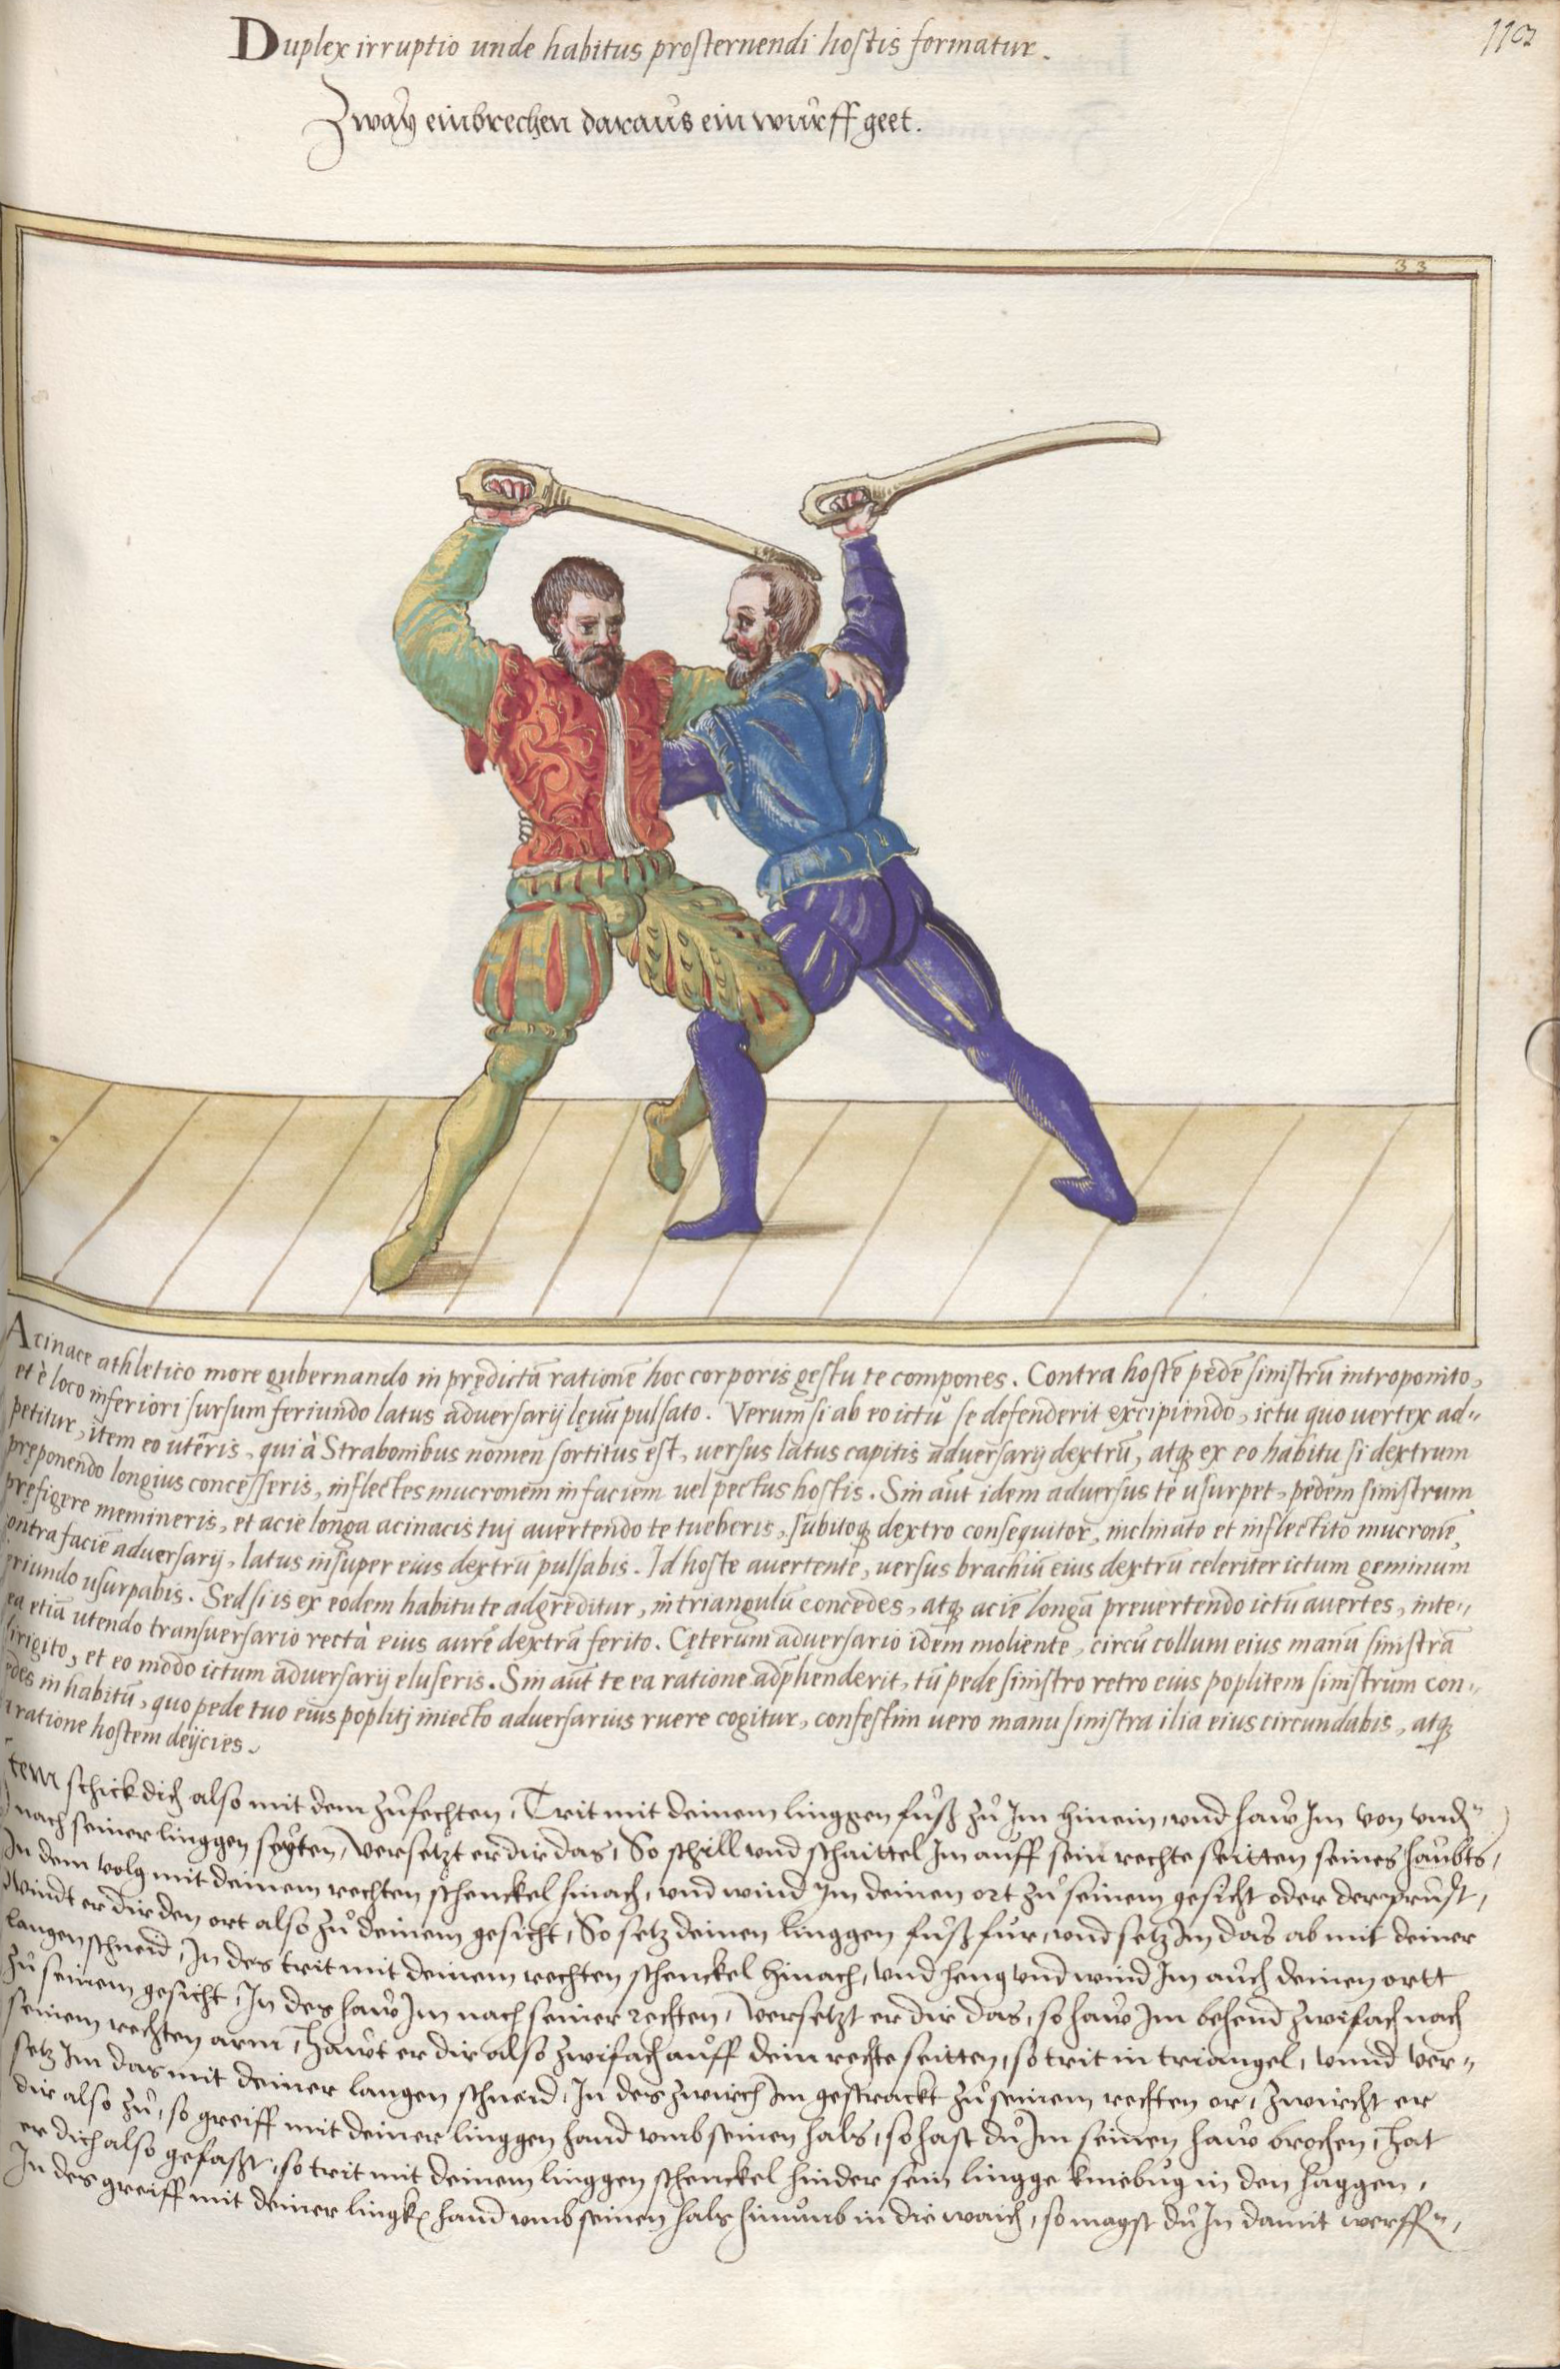 Duplex irruptio unde habitus prosternendi hostis formatur.
1103
Zway einbrechen daraus ein wurff geet.
33
Acinace athletico more gubernando in prędictā rationē hoc corporis gestu te compones. Contra hostē pedē sinistrū introponito,
et è loco inferiori sursum feriundo latus adversarij lęvū pulsato. Verum si ab eo ictu se defenderit excipiendo, ictu quo vertex ad-
petitur, item eo utēris, qui à Strabonibus nomen sortitus est, versus latus capitis adversarij dextrū, atq; ex eo habitu si dextrum
pręponendo longius concesseris, inflectes mucronem in faciem vel pectus hostis. Sin aūt idem adversus te usurpet, pedem sinistrum
pręfigere memineris, et acie longa acinacis tuj avertendo te tueberis, subitoq; dextro consequitor, inclinato et inflectito mucronē,
ontra faciē adversarij, latus insuper eius dextrū pulsabis. Id hoste avertente, versus brachiū eius dextrū celeriter ictum geminum
eriundo usurpabis. Sed si is ex eodem habitu te adgreditur, in triangulū concedes, atq; aciē longā prevertendo ictū avertes, inte-
ea etiā utendo transversario rectà eius aurē dextrā ferito. Cęterum adversario idem moliente, circū collum eius manū sinistrā
dirigito, et eo modo ictum adversarij eluseris. Sin aūt te ea ratione adphenderit, tū pede sinistro retro eius poplitem sinistrum con-
edes in habitū, quo pede tuo eius poplitj iniecto adversarius ruere cogitur, confestim vero manu sinistra ilia eius circundabis, atq;
a ratione hostem deijcies.
Item schick dich also mit dem zufechten, Trit mit deinem linggen fuß zu Im hinein, und haw Im von undn
nach seiner linggen seyten, versetzt er dir das, So schill und schaittel Im auff sein rechte seitten seines haubts,
In dem volg mit deinem rechten schenckel hinach, und wind Im deinen ort zu seinem gesicht oder der prust,
windt er dir den ort also zu deinem gesicht, So setz deinen linggen fuß fur, und setz Im das ab mit deiner
langen schneid, In des trit mit deinem rechten schenckel hinach, und heng und wind Im auch deinen ortt
zu seinem gesicht, In des haw Im nach seiner rechten, versetzt er dir das, so haw Im behend zwifach nach
seinem rechten arm, Hawt er dir also zwifach auff dein rechte seitten, so trit in triangel, unnd ver-
setz Im das mit deiner langen schneid, In des zwirch Im gestrackt zu seinem rechten or, zwircht er
dir also zu, so greiff mit deiner linggen hand umb seinen hals, so hast du Im seinen haw brochen, Hat
er dich also gefaßt, so trit mit deinem linggen schenckel hinder sein lingge kniebug in den haggen,
In des greiff mit deiner lingkn hand umb seinen hals hinumb in die waich, so magst du In damit werffn,